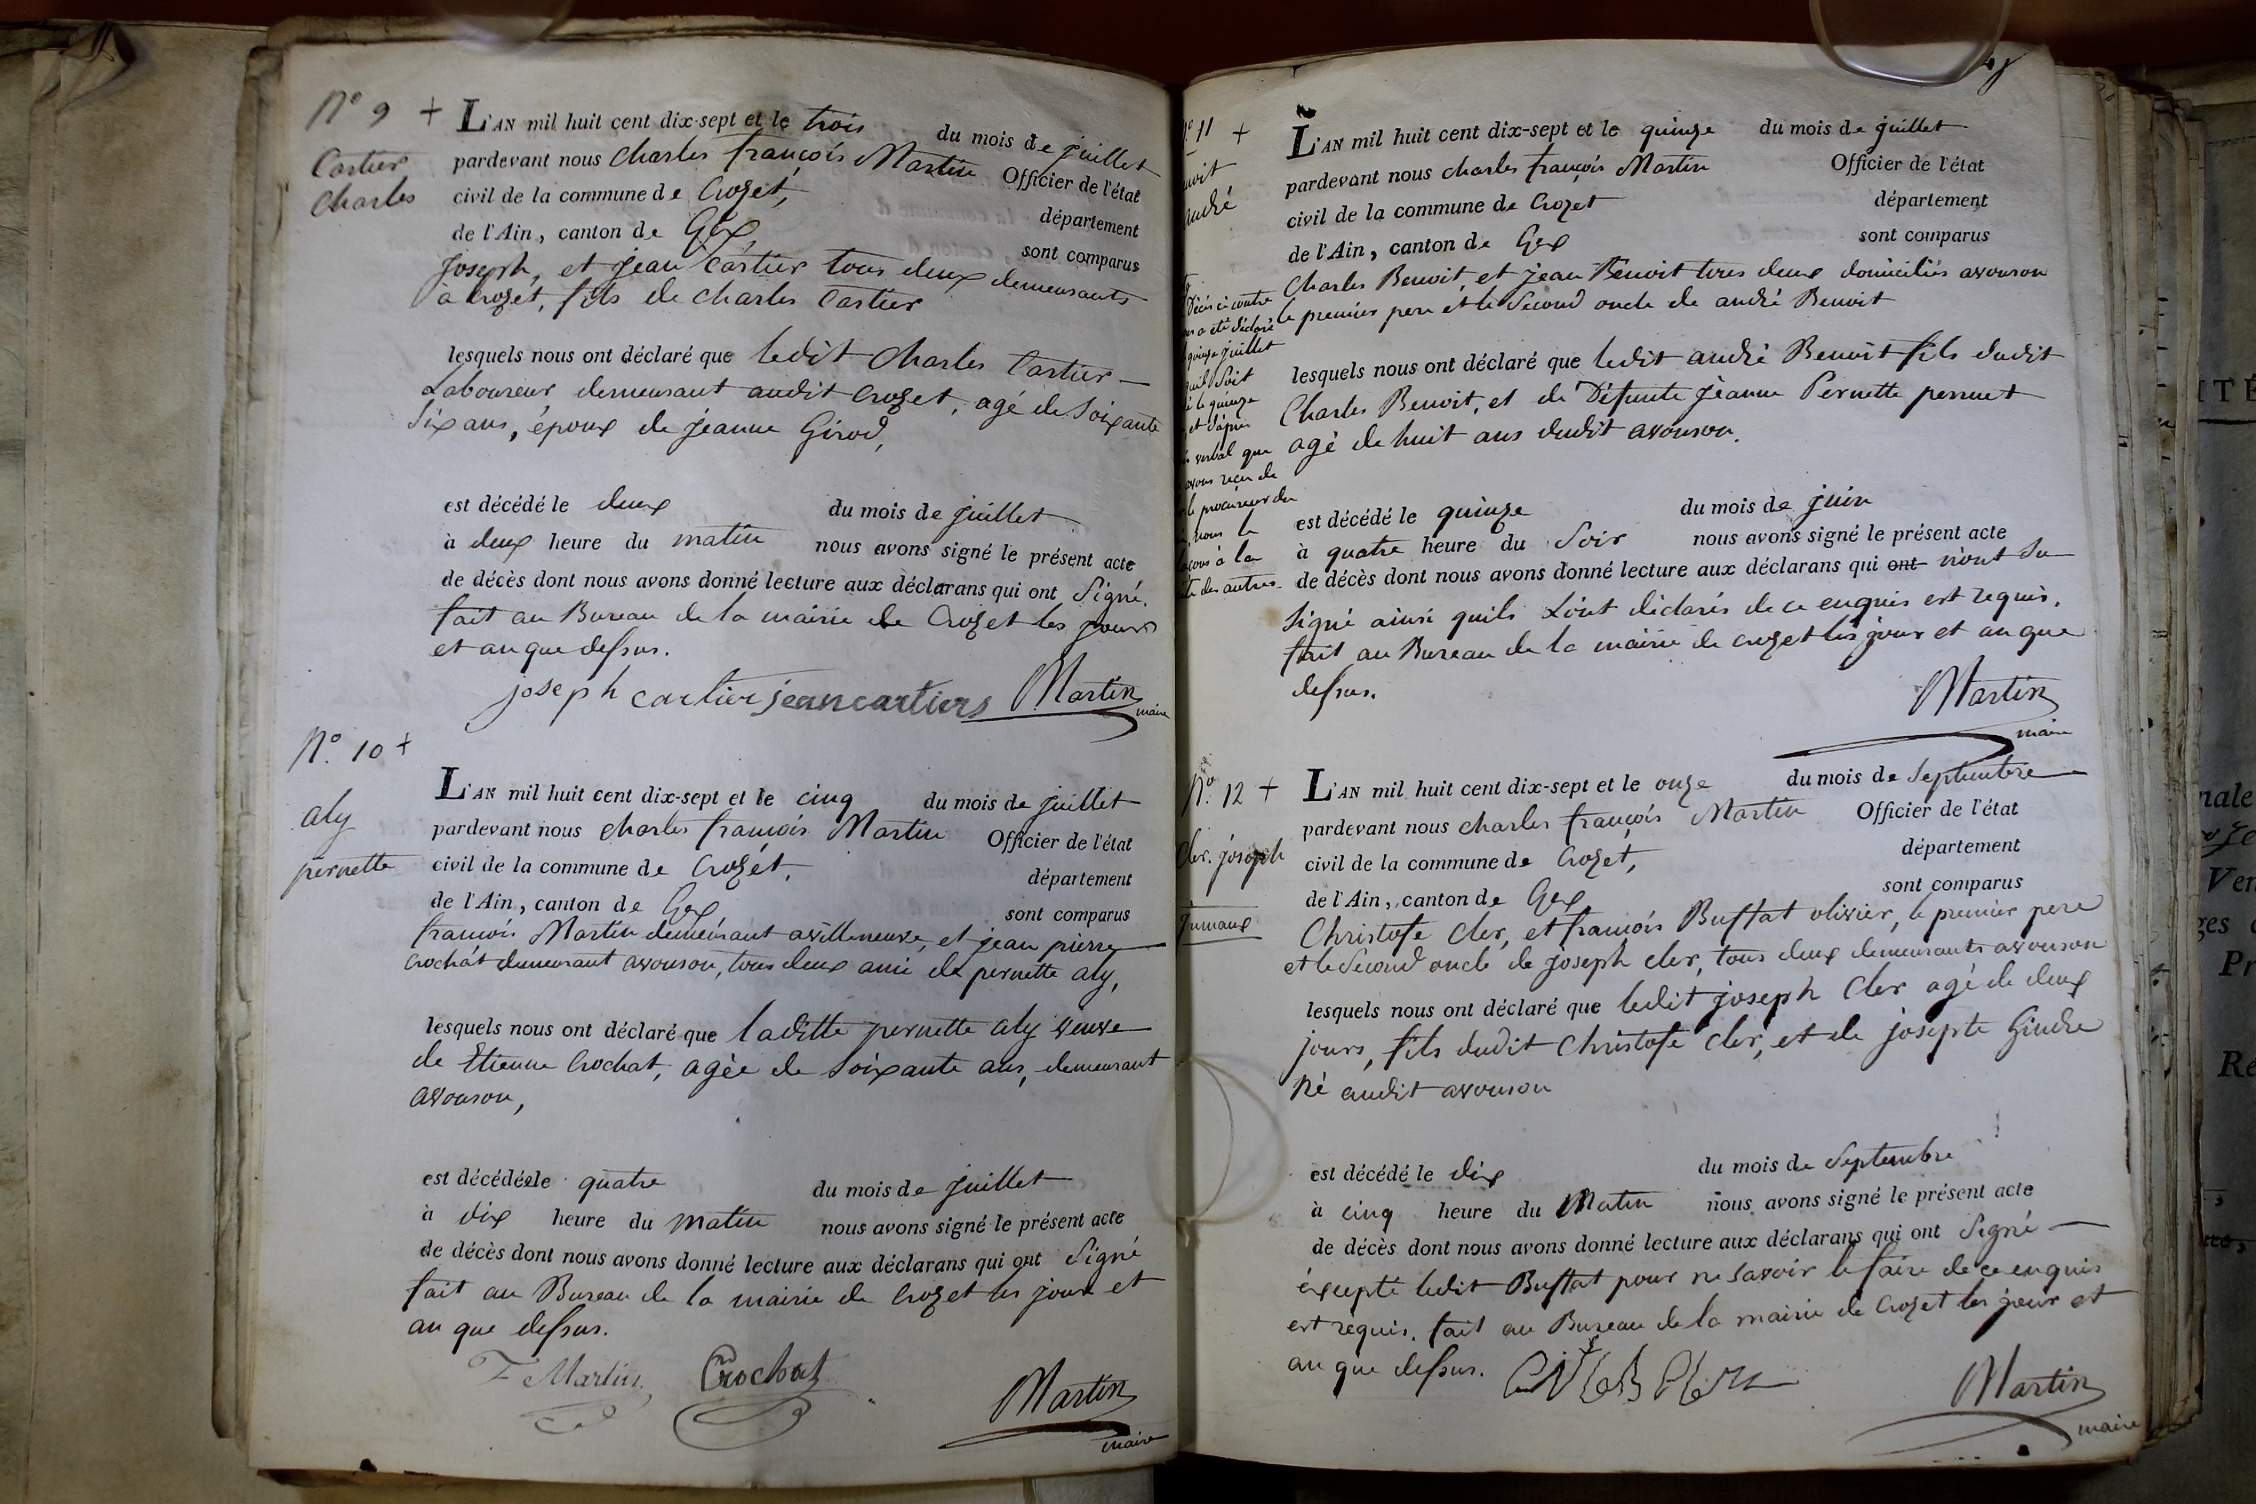 N.º 9 +
Cartier
Charles
L'AN mil huit cent dix-sept et le trois du mois de juillet
pardevant nous Charles françois Martin Officier de l'état
civil de la commune de Crozet, département
de l'Ain, canton de Gex sont comparus
Joseph, et jean Cartier tous deux demeurants
à Crozet, fils de Charles Cartier
lesquels nous ont déclaré que ledit Charles Cartier
Laboureur demeurant audit Crozet, agé de Soixante
Six ans, époux de jeanne Girod,
est décédé le deux du mois de juillet
à deux heure du matin nous avons signé le présent acte
de décès dont nous avons donné lecture aux déclarans qui ont Signé.
fait au Bureau de la mairie de Crozet les jours
et an que dessus.
joseph cartier jean cartiers Martin
maire
N.º 10 +
aly
pernette
L'AN mil huit cent dix-sept et le cinq du mois de juillet
pardevant nous Charles françois Martin Officier de l'état
civil de la commune de Crozét, département
de l'Ain, canton de Gex sont comparus
françois Martin demeurant avilleneuve, et jean pierre
Crochat demeurant avouson, tous deux ami de pernette aly,
lesquels nous ont déclaré que laditte pernette aly veuve
de Etienne Crochat, agée de Soixante ans, demeurant
avouson,
est décédée le quatre du mois de juillet
à dix heure du matin nous avons signé le présent acte
de décès dont nous avons donné lecture aux déclarans qui ont Signé
fait au Bureau de la mairie de Crozet les jour et
an que dessus.
F Martin, Crochat
Martin
maire
11 +
L'AN mil huit cent dix-sept et le quinze du mois de juillet
pardevant nous Charles françois Martin Officier de l'état
civil de la commune de Crozet département
de l'Ain, canton de Gex sont comparus
Charles Benoit, et jean Benoit tous deux domiciliés avouson
le premier pere et le Second oncle de andré Benoit
Décès ci contre
a été déclaré
quinze juillet
quil Soit
le quinze
et d'après
verbal que
avons reçu de
le procureur du
nous le
à la
des autres
lesquels nous ont déclaré que ledit andré Benoit fils dudit
Charles Benoit, et de Défunte jeanne Pernette perruet
agé de huit ans dudit avouson.
est décédé le quinze du mois de juin
à quatre heure du Soir nous avons signé le présent acte
de décès dont nous avons donné lecture aux déclarans qui ont n'ont Su
Signé ainsi quils L'ont déclarés de ce enquis est requis.
fait au Bureau de la mairie de crozet les jour et an que
dessus.
Martin
maire
N.º 12 +
Cler. joseph
Jumaux
L'AN mil huit cent dix-sept et le onze du mois de Septembre
pardevant nous Charles françois Martin Officier de l'état
civil de la commune de Crozet, département
de l'Ain, canton de Gex sont comparus
Christofe Cler, et françois Buffat olivier, le premier pere
et le Second oncle de joseph Cler, tous deux demeurants avouson
lesquels nous ont déclaré que ledit joseph Cler agé de deux
jours, fils dudit Christofe Cler, et de josepte Gindre
né audit avouson
est décédé le dix du mois de Septembre
à cinq heure du Matin nous avons signé le présent acte
de décès dont nous avons donné lecture aux déclarans qui ont Signé
éxcepté ledit Buffat pour ne savoir le faire de ce enquis
est requis. fait au Bureau de la mairie de Crozet les jour et
an que dessus.
Martin
maire